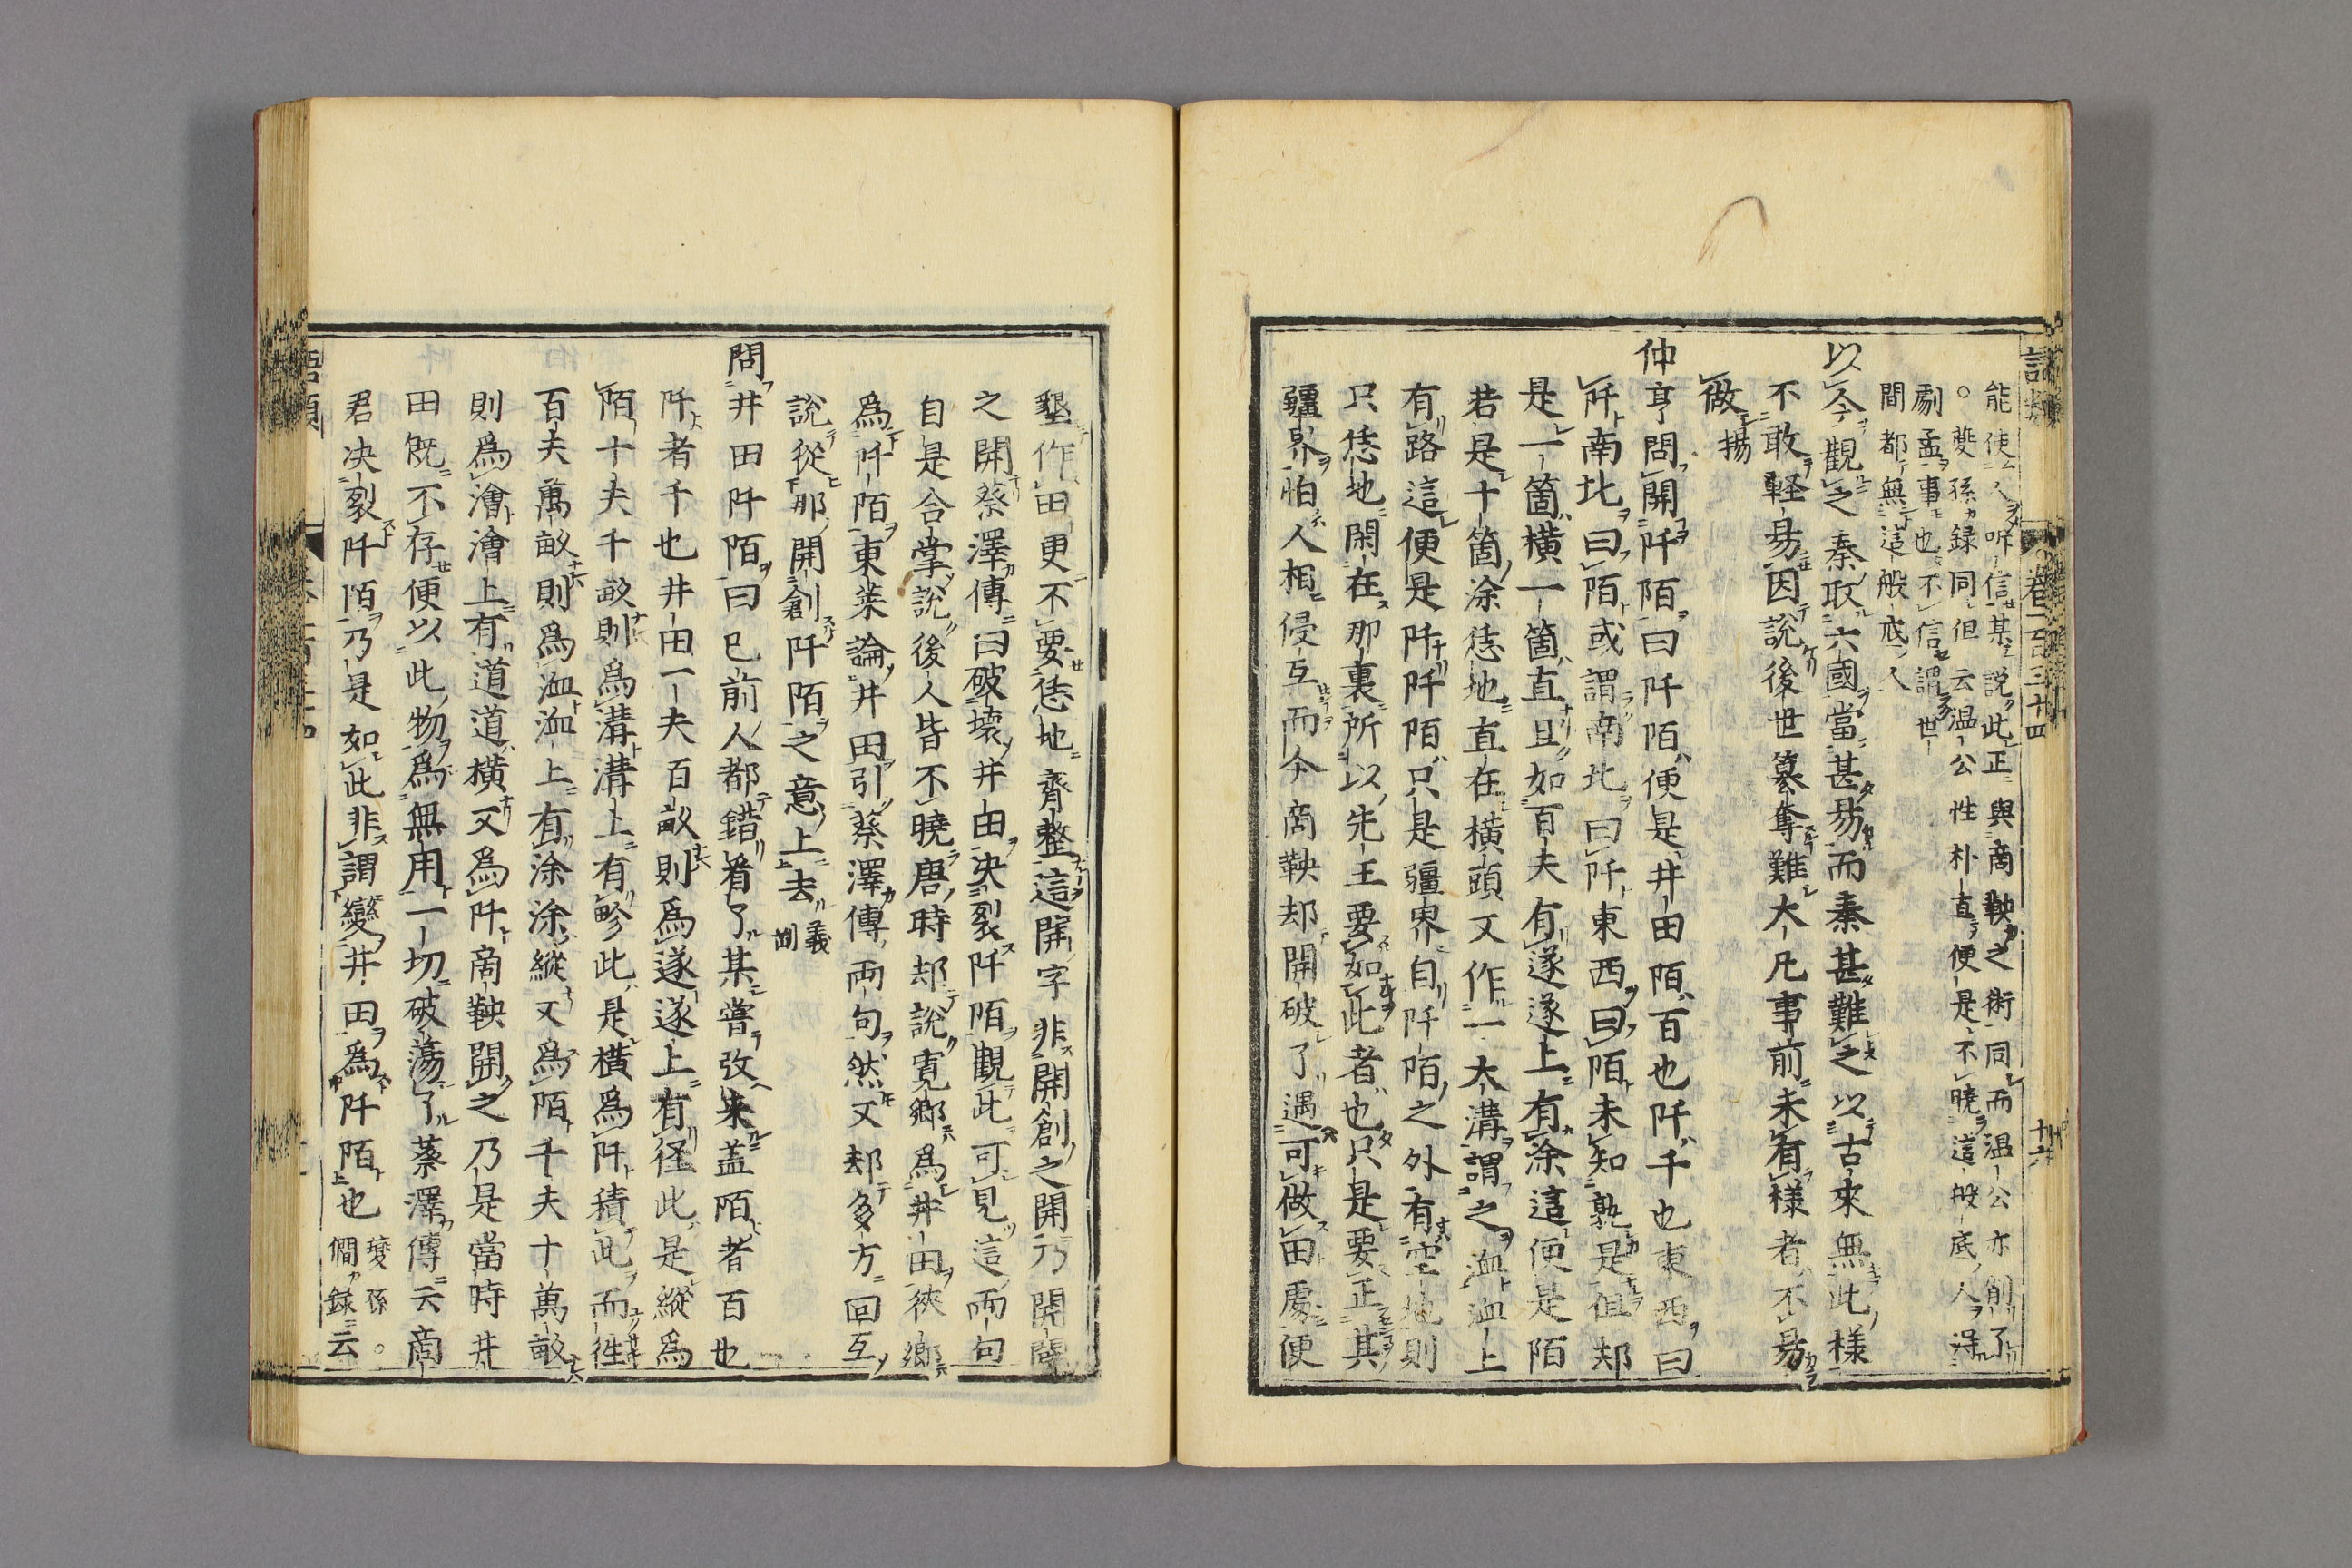 語類 卷一百三十四 十六
能使人呀信某說此正與商鞅之術同而温公亦削了
○夔孫録同但云温公性朴直便是不曉這般底人得
劇孟事也不信謂世
間都無這般底人
以今觀之秦取六國當甚易而秦甚難之以古來無此樣
不敢輕易因說後世簒奪難大凡事前未有樣者不易
做揚
仲亨問開阡陌曰阡陌便是井田陌百也阡千也東西曰
阡南北曰陌或謂南北曰阡東西曰陌未知孰是但却
是一箇橫一箇直且如百夫有遂遂上有涂這便是陌
若是十箇涂恁地直在橫頭又作一大溝謂之洫洫上
有路這便是阡阡陌只是疆界自阡陌之外有空地則
只恁地閑在那裏所以先王要如此者也只是要正其
疆界怕人相侵互而今商鞅却開破了遇可做田處便
墾作田更不要恁地齊整這開字非開創之開乃開闢
之開蔡澤傳曰破壞井田決裂阡陌觀此可見這兩句
自是合掌說後人皆不曉唐時却說寬鄉爲井田狹鄉
爲阡陌東萊論井田引蔡澤傳兩句然又却多方回互
說從那開創阡陌之意上去義剛
問井田阡陌曰已前人都錯看了某嘗攷来盖陌者百也
阡者千也井田一夫百畝則爲遂遂上有径此是縱爲
陌十夫千畝則爲溝溝上有畛此是橫爲阡積此而徃
百夫萬畝則爲洫洫上有涂涂縱又爲陌千夫十萬畝
則爲澮澮上有道道橫又爲阡商鞅開之乃是當時井
田既不存便以此物爲無用一切破蕩了蔡澤傳云商
君决裂阡陌乃是如此非謂變井田爲阡陌也夔孫○僩録云
語類